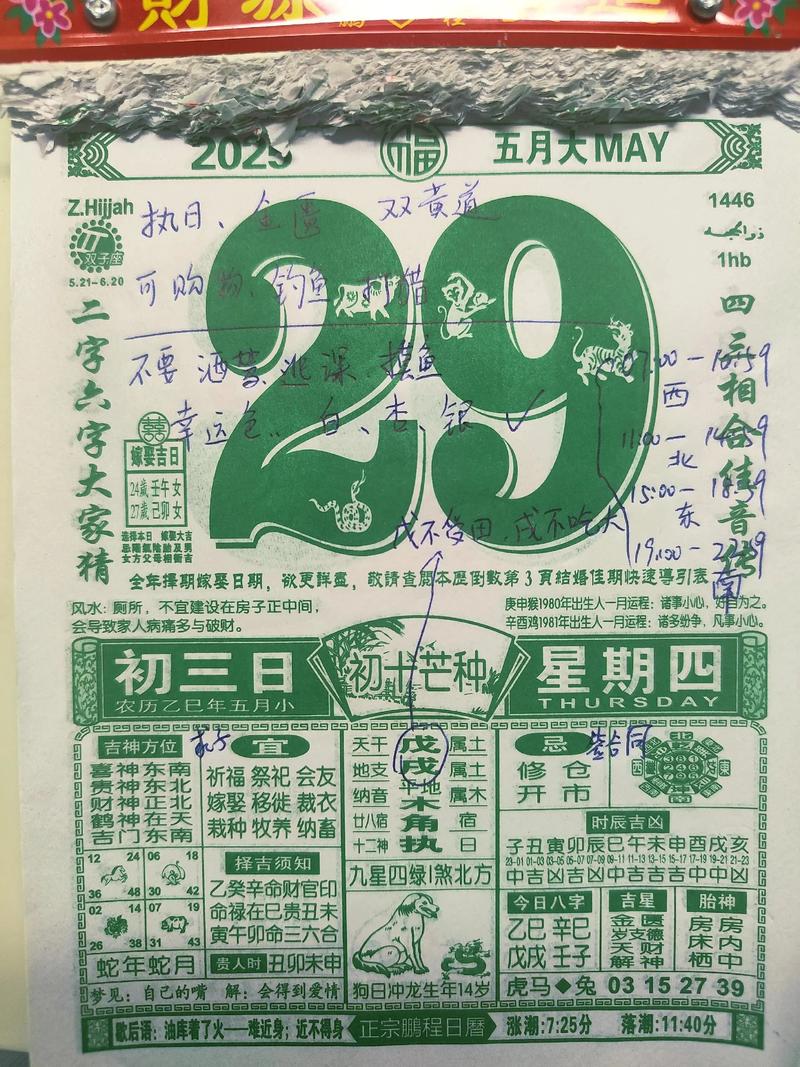 鹏 程
2025 福 五月大MAY
Z.Hijjah
1446
1hb
双子座
5.21-6.20
29
执日、金匱 双黄道
可购物、钓鱼、打猎
不要 酒驾 逃课、摸鱼
幸运色：白、杏、银 ✓
07:00 - 10:59
西
11:00 - 14:59
北
15:00 - 18:59
东
19:00 - 22:59
南
戊不受田、戌不吃犬
二字六字大家猜
四三相合佳音传
囍
嫁娶吉日
24歲 壬午 女
27歲 己卯 女
選擇本日 嫁娶大吉
忌陽氣陰胎及男
女方父母相衝吉
全年择期嫁娶日期，欲更詳盡，敬請查閱本歷倒數第3頁結婚佳期快速導引表
风水: 厕所，不宜建设在房子正中间，
会导致家人病痛多与破财。
庚申猴1980年出生人一月运程：诸事小心，好自为之。
辛酉鸡1981年出生人一月运程：诸多纷争，凡事小心。
初三日
农历乙巳年五月小
初十芒种
星期四
THURSDAY
吉神方位
喜神东南
贵神东北
财神正北
鹤神在天
吉门东南
宜
祈福 祭祀 会友
嫁娶 移徙 裁衣
栽种 牧养 纳畜
天干 戊 属土
地支 戌 属土
纳音 平地木 属木
廿八宿 角 宿
十二神 执 日
忌 签合同
修仓
开市
时辰吉凶
子丑寅卯辰巳午未申酉戌亥
23-01 01-03 03-05 05-07 07-09 09-11 11-13 13-15 15-17 17-19 19-21 21-23
12 06 18
36 48 30 42
02 14 07 19
26 38 31 43
蛇年蛇月
择吉须知
乙癸辛命财官印
命禄在巳贵丑未
寅午卯命三六合
贵人时 丑卯未申
九星四绿 煞北方
狗日冲龙生年14岁
今日八字
乙巳 辛巳
戊戌 壬子
吉星
金匮
岁支德
天财
解神
胎神
房房
床内
栖中
梦见：自己的嘴 解：会得到爱情
虎马◆兔 03 15 27 39
歇后语：油库着了火──难近身；近不得身
正宗鹏程日曆
涨潮:7:25分 落潮:11:40分